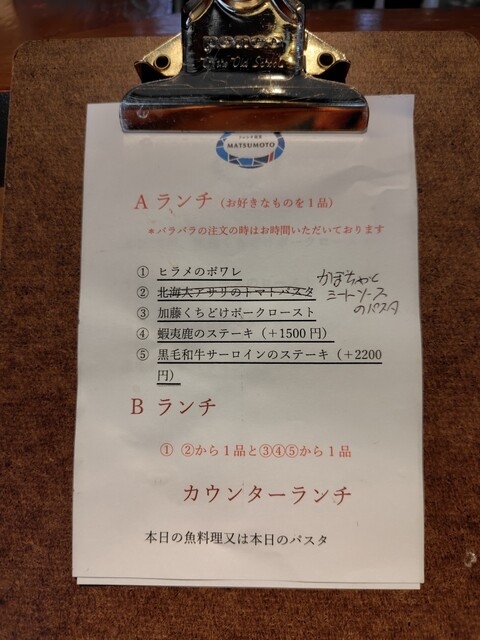 penco
フレンチ食堂
MATSUMOTO
A ランチ（お好きなものを1品）
＊バラバラの注文の時はお時間いただいております
① ヒラメのポワレ
② 北海大アサリのトマトパスタ
かぼちゃと
ミートソース
のパスタ
③ 加藤くちどけポークロースト
④ 蝦夷鹿のステーキ（＋1500 円）
⑤ 黒毛和牛サーロインのステーキ（＋2200
円）
B ランチ
① ②から1品と③④⑤から1品
カウンターランチ
本日の魚料理又は本日のパスタ